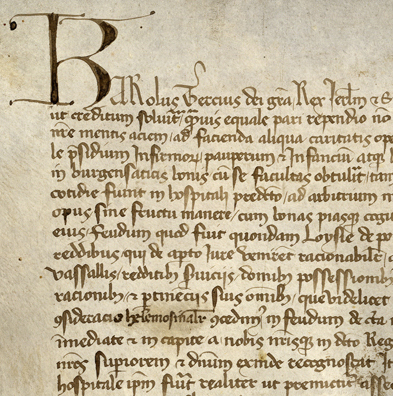 KARolus Tercius dei gra Rex Jerlm & S
ut creditum soluit quis equale pari rependio no
nre mentis aciem / ad facienda aliqua caritatis ope
le psidium Infirmor pauperum & Infancium atq
in burgensaticis bonis cu se facultas obtulit tam
cotidie fuint in hospitali predcto / ad arbitrium
opus sine fructu manere / cum bonas piasque cogi
eius / feudum quod fuit quondam Loysie de po
reddibus / qui de apto Jure venirent racionabilit
vassallis / redditib Suiciis / domib possessionib
racionib / & ptinecijs suis omib / que videlicet
9sideracio helemosinalr 9cedim in feudum de cta
imediate & in capite a nobis nrisque in dco Reg
nros supiorem & dnium exinde recognoscat It
hospitale ipm fiut realitet ut premictit asse